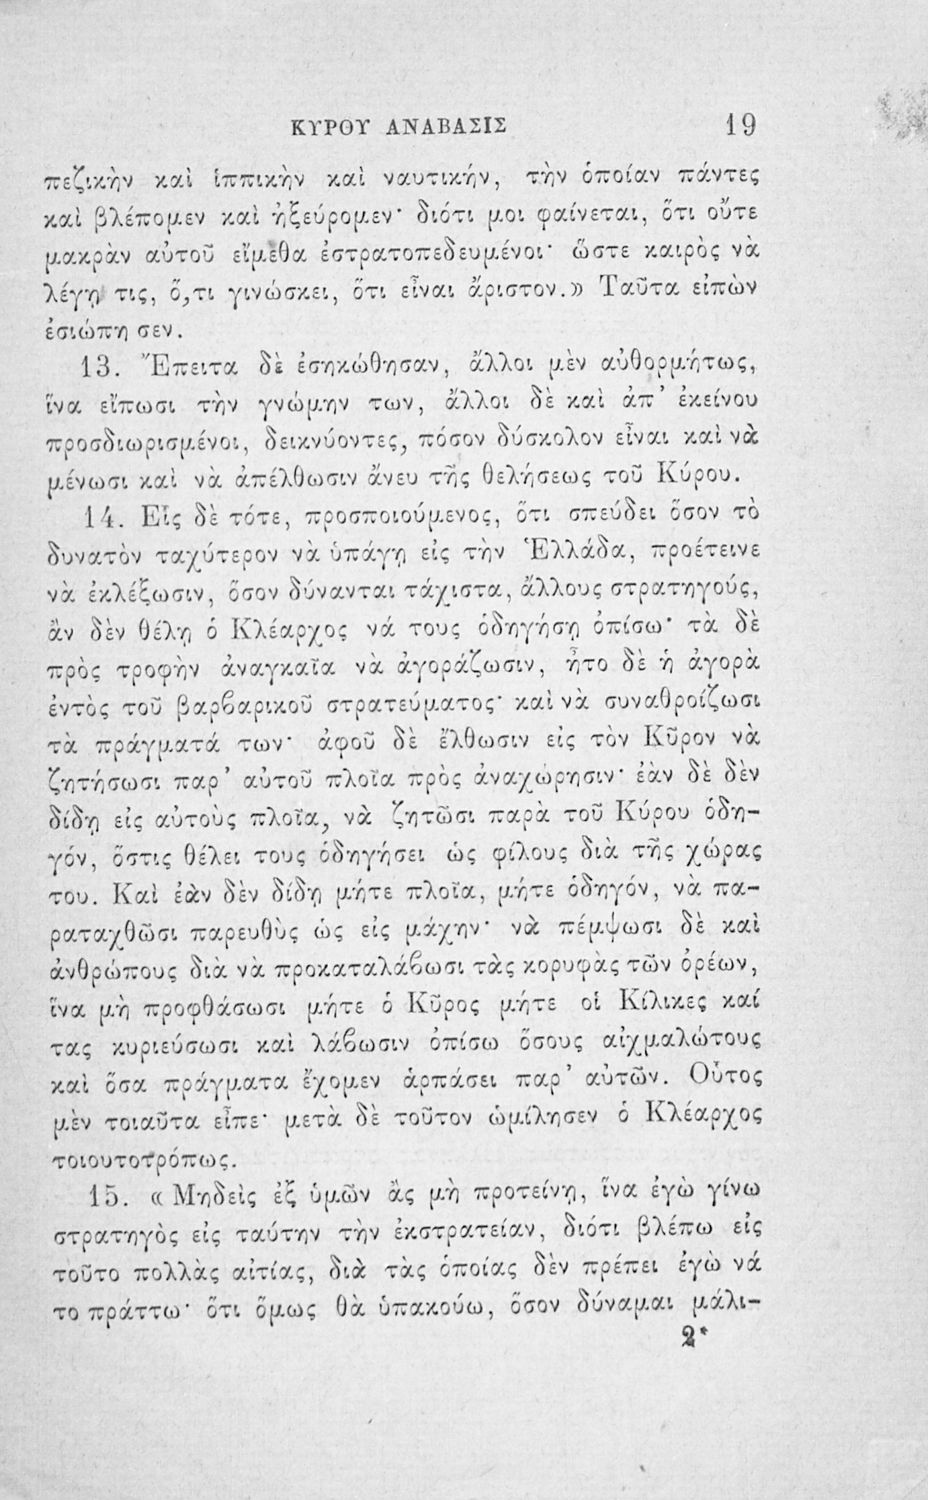 ΚΥΡΟΥ ΑΝΑΒΑΣΙΣ 19
πεζικὴν καὶ ἱππικὴν καὶ ναυτικήν, τὴν ὁποίαν πάντες
καὶ βλέπομεν καὶ ἠξεύρομεν· διότι μοι φαίνεται, ὅτι οὔτε
μακρὰν αὐτοῦ εἴμεθα ἐστρατοπεδευμένοι· ὥστε καιρὸς νὰ
λέγῃ τις, ὅ,τι γινώσκει, ὅτι εἶναι ἄριστον.» Ταῦτα εἰπὼν
ἐσιώπησεν.
13. Ἔπειτα δὲ ἐσηκώθησαν, ἄλλοι μὲν αὐθορμήτως,
ἵνα εἴπωσι τὴν γνώμην των, ἄλλοι δὲ καὶ ἀπ' ἐκείνου
προσδιωρισμένοι, δεικνύοντες, πόσον δύσκολον εἶναι καὶ νὰ
μένωσι καὶ νὰ ἀπέλθωσιν ἄνευ τῆς θελήσεως τοῦ Κύρου.
14. Εἷς δὲ τότε, προσποιούμενος, ὅτι σπεύδει ὅσον τὸ
δυνατὸν ταχύτερον νὰ ὑπάγῃ εἰς τὴν Ἑλλάδα, προέτεινε
νὰ ἐκλέξωσιν, ὅσον δύνανται τάχιστα, ἄλλους στρατηγούς,
ἂν δὲν θέλῃ ὁ Κλέαρχος νά τους ὁδηγήσῃ ὀπίσω· τὰ δὲ
πρὸς τροφὴν ἀναγκαῖα νὰ ἀγοράζωσιν, ἦτο δὲ ἡ ἀγορὰ
ἐντὸς τοῦ βαρβαρικοῦ στρατεύματος· καὶ νὰ συναθροίζωσι
τὰ πράγματά των· ἀφοῦ δὲ ἔλθωσιν εἰς τὸν Κῦρον νὰ
ζητήσωσι παρ' αὐτοῦ πλοῖα πρὸς ἀναχώρησιν· ἐὰν δὲ δὲν
δίδῃ εἰς αὐτοὺς πλοῖα, νὰ ζητῶσι παρὰ τοῦ Κύρου ὁδη-
γόν, ὅστις θέλει τους ὁδηγήσει ὡς φίλους διὰ τῆς χώρας
του. Καὶ ἐὰν δὲν δίδῃ μήτε πλοῖα, μήτε ὁδηγόν, νὰ πα-
ραταχθῶσι παρευθὺς ὡς εἰς μάχην· νὰ πέμψωσι δὲ καὶ
ἀνθρώπους διὰ νὰ προκαταλάβωσι τὰς κορυφὰς τῶν ὀρέων,
ἵνα μὴ προφθάσωσι μήτε ὁ Κῦρος μήτε οἱ Κίλικες καί
τας κυριεύσωσι καὶ λάβωσιν ὀπίσω ὅσους αἰχμαλώτους
καὶ ὅσα πράγματα ἔχομεν ἁρπάσει παρ' αὐτῶν. Οὗτος
μὲν τοιαῦτα εἶπε· μετὰ δὲ τοῦτον ὡμίλησεν ὁ Κλέαρχος
τοιουτοτρόπως.
15. «Μηδεὶς ἐξ ὑμῶν ἂς μὴ προτείνῃ, ἵνα ἐγὼ γίνω
στρατηγὸς εἰς ταύτην τὴν ἐκστρατείαν, διότι βλέπω εἰς
τοῦτο πολλὰς αἰτίας, διὰ τὰς ὁποίας δὲν πρέπει ἐγὼ νά
το πράττω· ὅτι ὅμως θὰ ὑπακούω, ὅσον δύναμαι μάλι-
2*